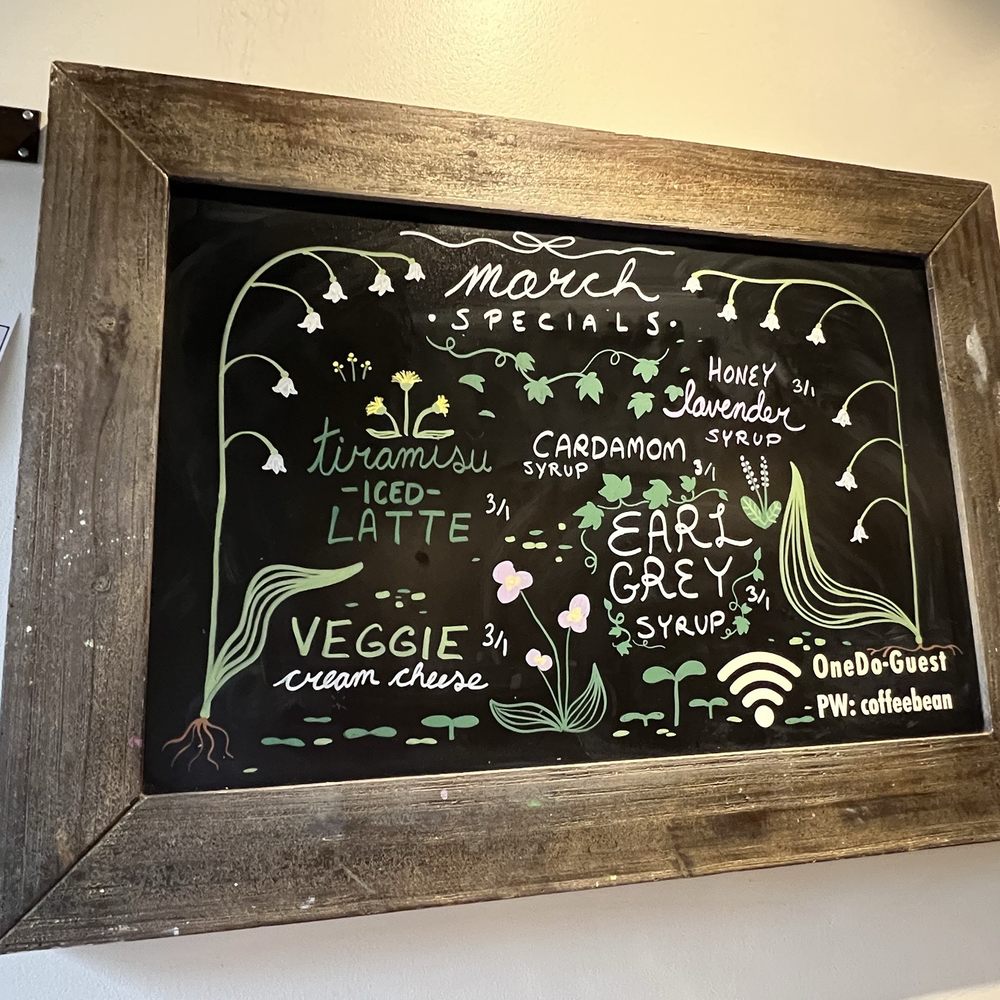 march
• SPECIALS •
tiramisu
-ICED-
LATTE 3/1
VEGGIE 3/1
cream cheese
HONEY 3/1
lavender
SYRUP
CARDAMOM
SYRUP 3/1
EARL
GREY 3/1
SYRUP
OneDo-Guest
PW: coffeebean